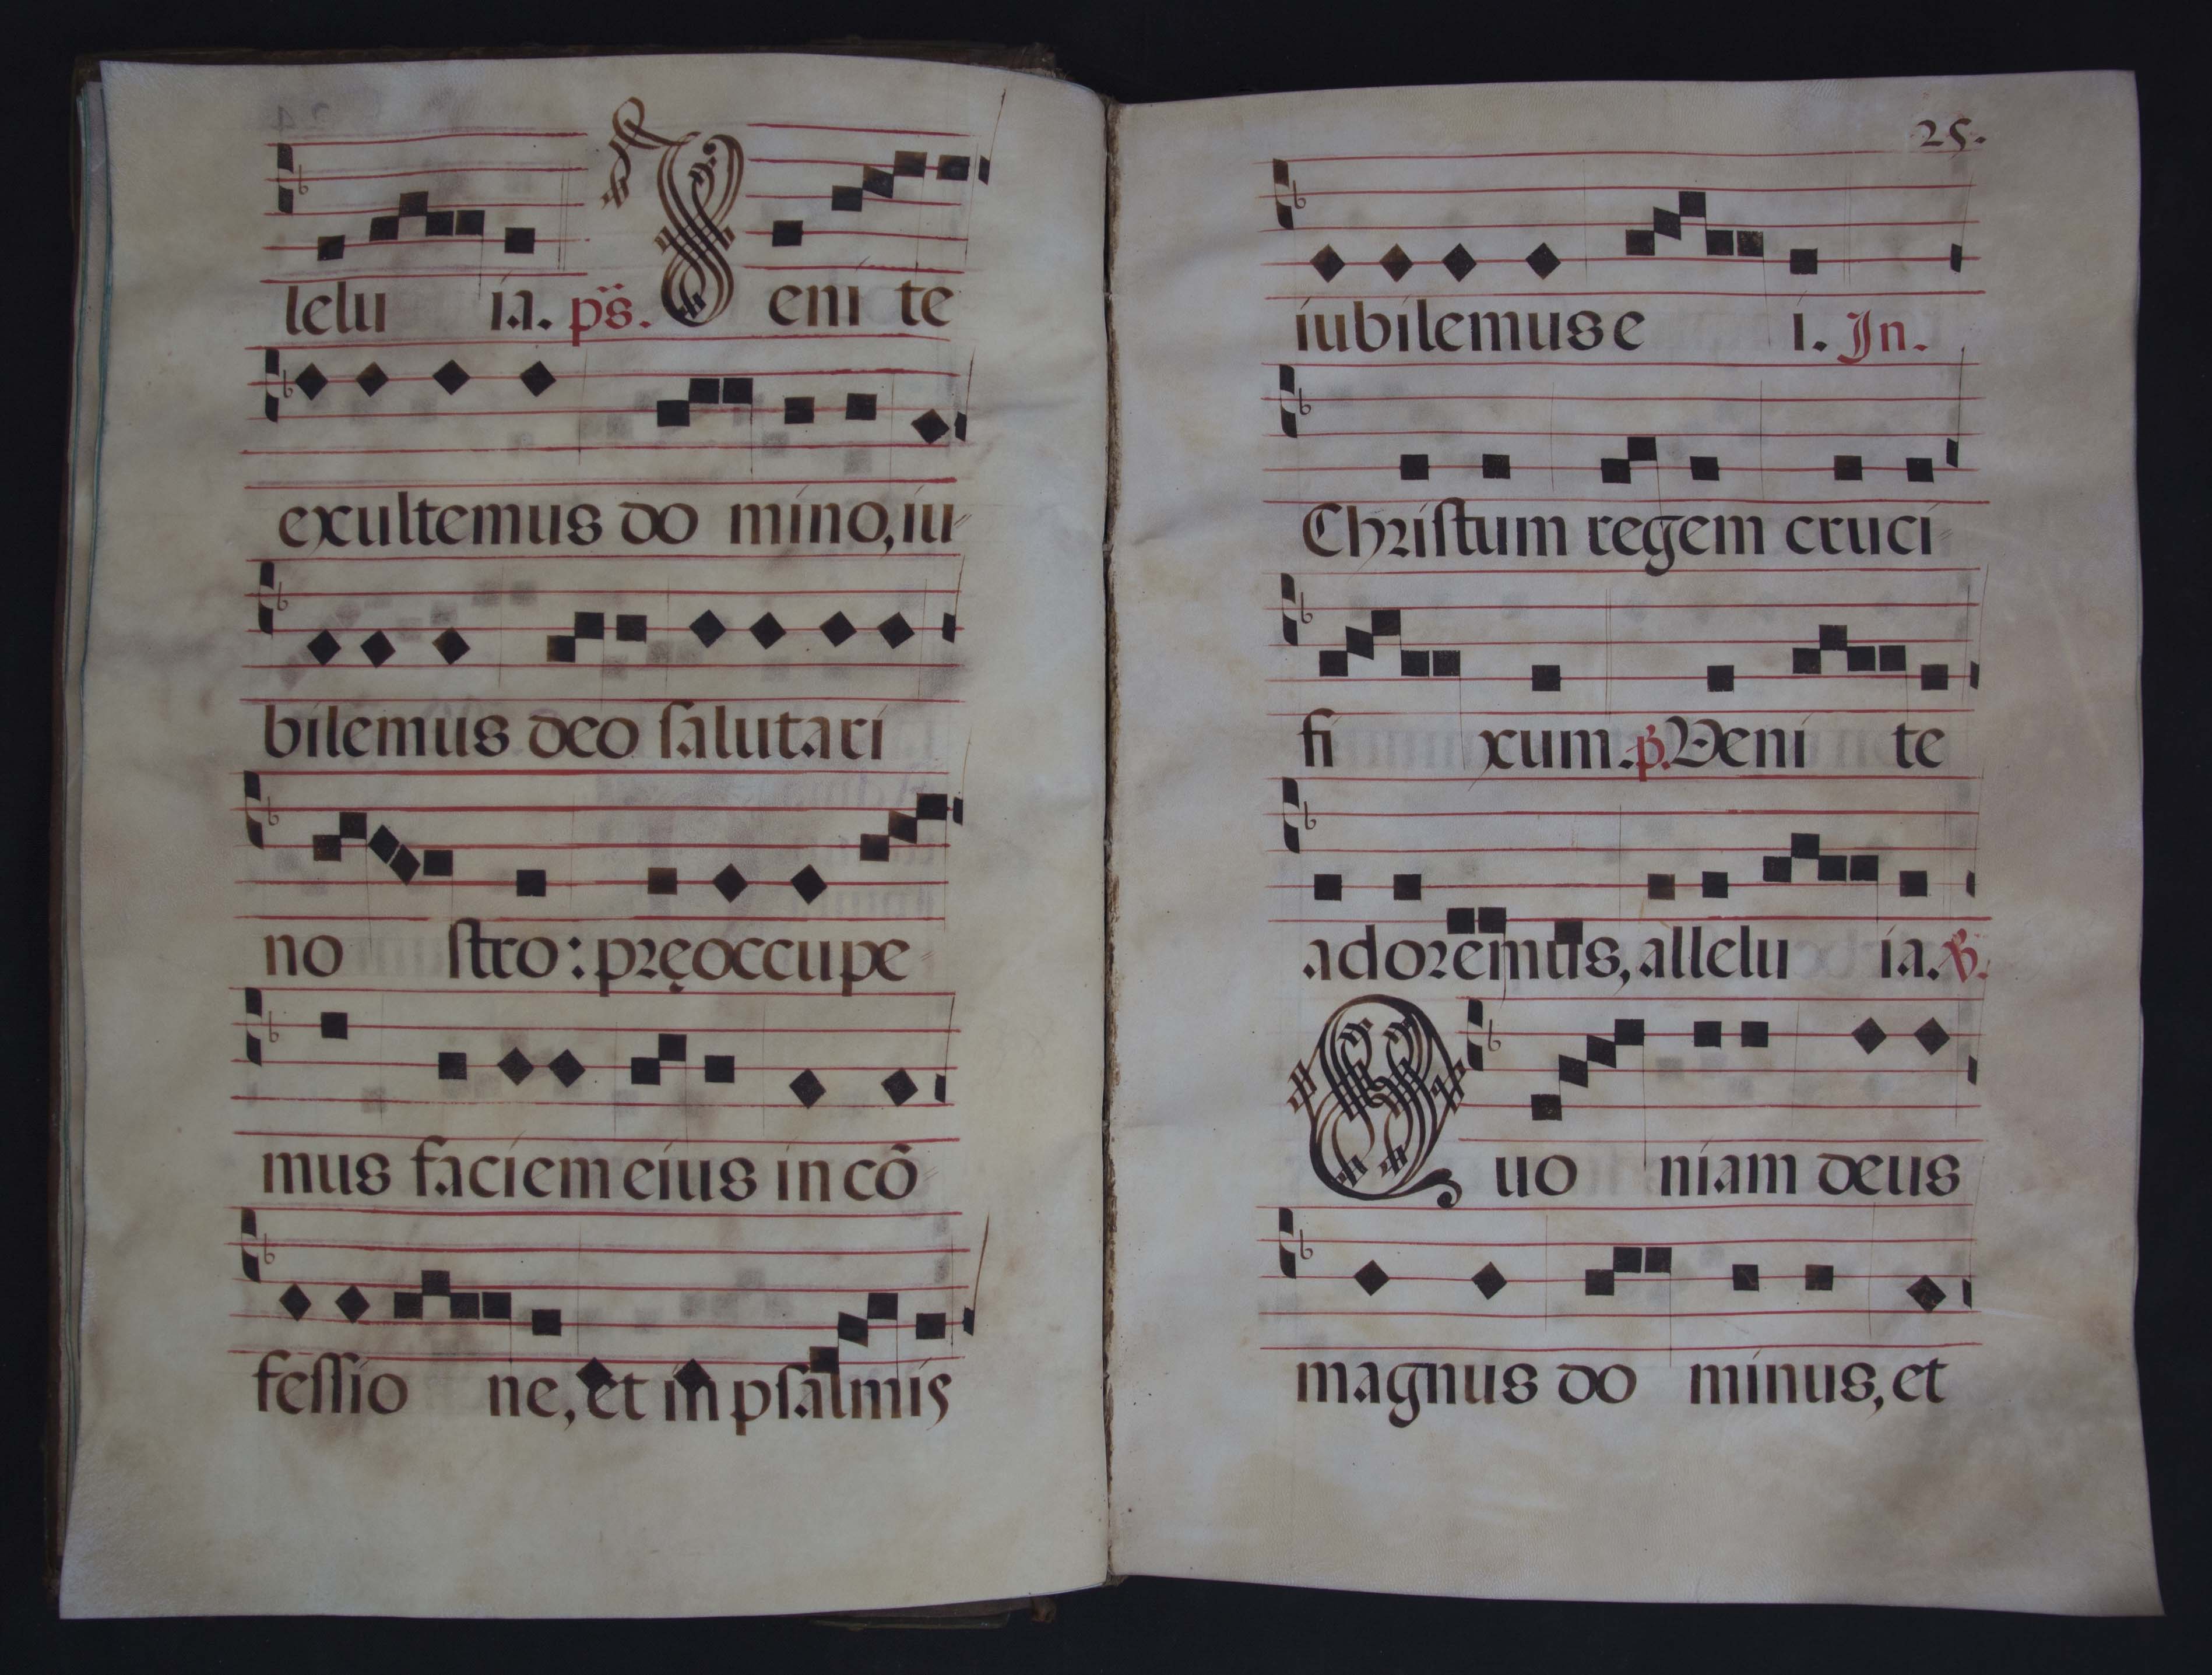 lelu ia. ps. Veni te
exultemus do mino, iu-
bilemus deo salutari
no stro: pręoccupe-
mus faciem eius in cõ-
fessio ne, et in psalmis
25.
iubilemus e i. In.
Christum regem cruci
fi xum. p. Veni te
adoremus, allelu ia. ꝟ.
Quo niam deus
magnus do minus, et